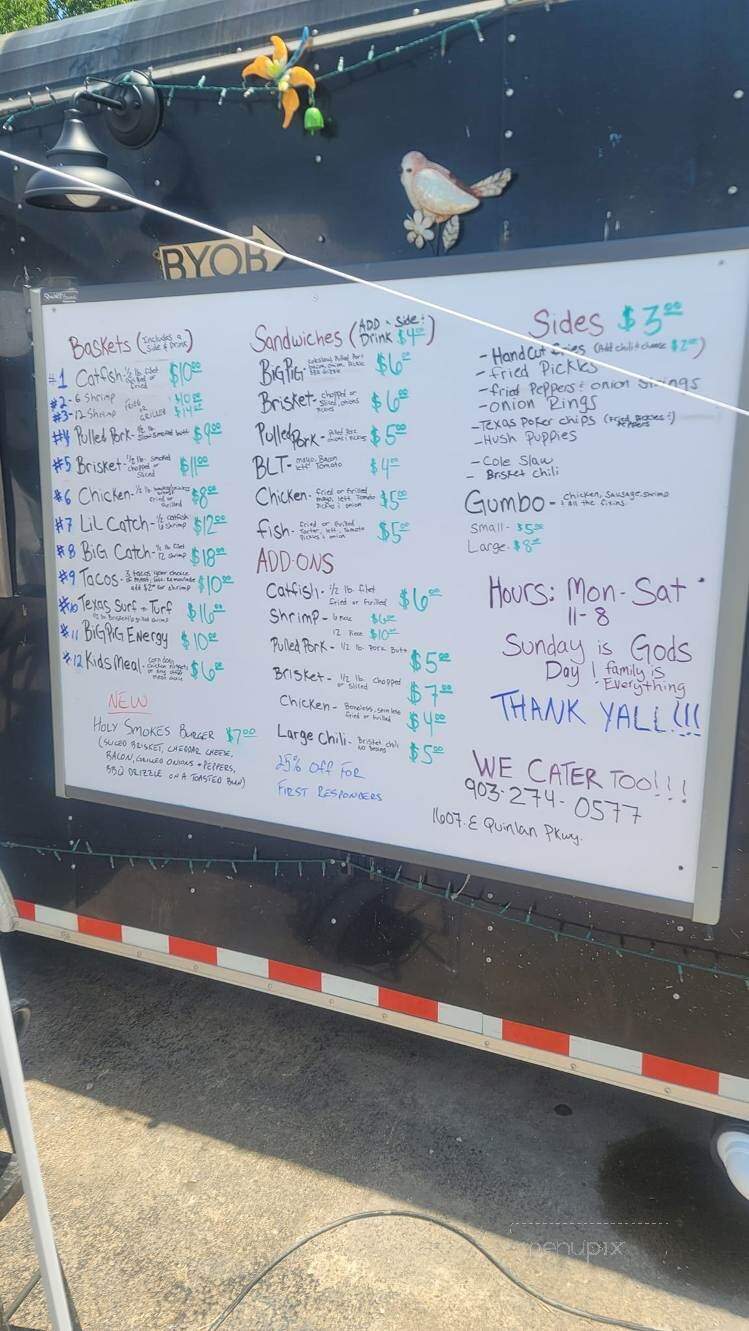 BYOB
Baskets (Includes a
Side & Drink)
#1 Catfish - ½ lb filet
fried $10.00
#2 - 6 Shrimp fried $10.00
#3 - 12 Shrimp or GRILLED $14.00
#4 Pulled Pork - ½ lb. Slow Smoked butt $9.00
#5 Brisket - ½ lb. Smoked
chopped or
Sliced $11.00
#6 Chicken - ½ lb.
fried or
grilled $8.00
#7 Lil Catch - ½ catfish
6 shrimp $12.00
#8 BiG Catch - ½ filet
12 shrimp $18.00
#9 Tacos - 3 tacos your choice
of meat, slaw, remoulade
add $2.00 for shrimp $10.00
#10 Texas Surf & Turf $16.00
#11 BiGPiG Energy $10.00
#12 Kids Meal - corn dog,
chicken nuggets $6.00
NEW
HOLY SMOKES BURGER $7.00
(SLICED BRISKET, CHEDDAR CHEESE,
BACON, GRILLED ONIONS & PEPPERS,
BBQ DRIZZLE ON A TOASTED BUN)
Sandwiches (ADD - Side &
Drink $4.00)
BiGPiG - coleslaw, Pulled Pork
bacon, onion, Pickle
BBQ drizzle $6.00
Brisket - chopped or
Sliced, onions
Pickles $6.00
Pulled Pork - Pulled Pork
onions & Pickles $5.00
BLT - mayo, Bacon
lett Tomato $4.00
Chicken - fried or grilled
mayo, lett, Tomato
Pickle & onion $5.00
fish - fried or Grilled
Tarter, lett, Tomato
Pickles & onion $5.00
ADD-ONS
Catfish - ½ lb filet
fried or grilled $6.00
Shrimp - 6 Piece $6.00
12 Piece $10.00
Pulled Pork - ½ lb. Pork Butt $5.00
Brisket - ½ lb. chopped
or Sliced $7.00
Chicken - Boneless, skinless
fried or grilled $4.00
Large Chili - Brisket chili
no beans $5.00
25% Off FOR
FIRST RESPONDERS
Sides $3.00
- Hand Cut fries (Add chili & cheese $2.00)
- fried Pickles
- fried Peppers & onion Strings
- onion Rings
- Texas Poker chips (fried Pickles & Peppers)
- Hush Puppies
- Cole Slaw
- Brisket chili
Gumbo - chicken, Sausage, shrimp
& all the fixins.
Small - $5.00
Large - $8.00
Hours: Mon - Sat
11-8
Sunday is Gods
Day! family is
Everything
THANK YALL!!!
WE CATER TOO!!!
903-274-0577
1607 E Quinlan Pkwy.
menupix